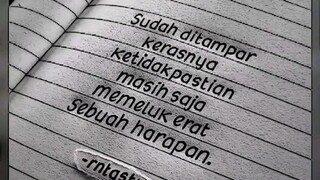 Sudah ditampar
kerasnya
ketidakpastian
masih saja
memeluk erat
sebuah harapan.